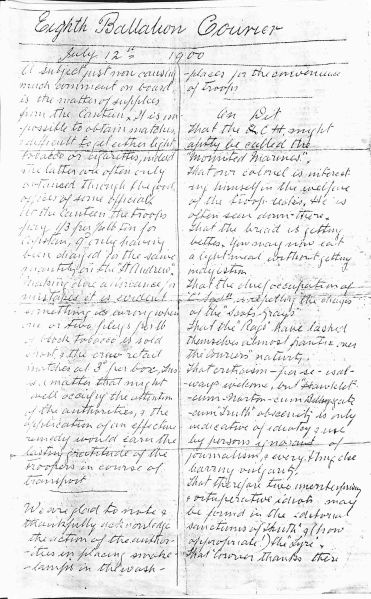 Eighth Battalion Courier
July 12th 1900
A subject just now causing
much comment on board
is the matter of supplies
from the Canteen. It is im-
possible to obtain matches,
difficult to get either light
tobacco or cigarettes, indeed
the latter are often only
obtained through the good
offices of some official.
At the Canteen the troops
pay 1/3 per lb tin for
Capstan, 9d only having
been charged for the same
quantity on the St Andrew.
Making due allowance for
mistakes it is evident
something is wrong when
one or two plugs per lb
of block tobacco is sold
short & the crew retail
matches at 3d per box. This
is a matter that might
well occupy the attention
of the authorities, & the
application of an effective
remedy would earn the
lasting gratitude of the
troopers in course of
transport
We are glad to note &
thankfully acknowledge
the action of the author-
-ities in placing smoke-
-lamps in the wash-
-places for the convenience
of troops
On Dit
That the C H might
aptly be called the
"Mounted Marines".
That our colonel is interest
ing himself in the welfare
of the troop under. He is
often seen down there.
That the bread is getting
better. You may now eat
a light meal without getting
indigestion
That the chief occupation of
is the
of the "Scots Grays"
That the "Rags" have lashed
themselves almost frantic over
the Couriers nativity.
That criticism - per se - is al-
-ways welcome, but
-cum-Norton-cum
-cum "Truth" obscenity is only
indicative of idiotcy & use
by persons ignorant of
journalism & every thing else
barring vulgarity.
That therefore two unenterprising
& vituperative idiots may
be found in the editorial
sanctums of "Truth" & (how
appropriate!) the "Lyre".
That Courier thanks there